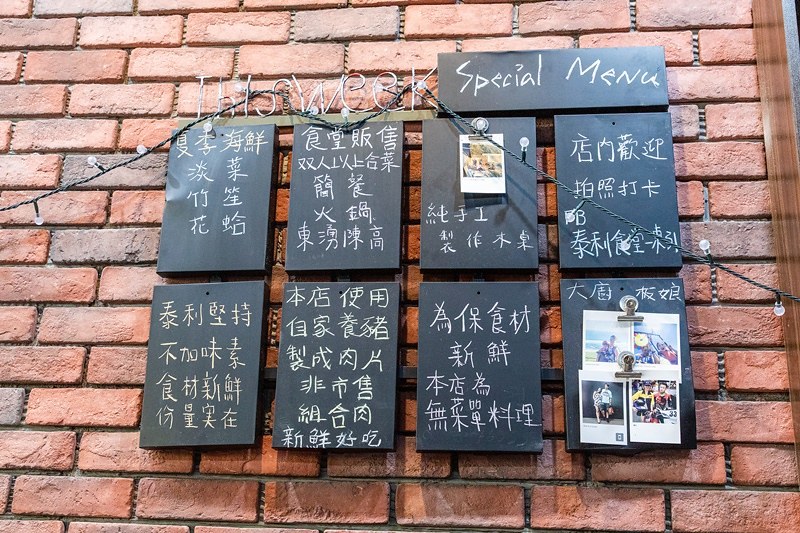 THIS WEEK
Special Menu
夏季海鮮
淡菜
竹笙
花蛤
食堂販售
双人以上合菜
簡餐
火鍋
東湧陳高
純手工
製作木桌
店內歡迎
拍照打卡
泰利食堂
泰利堅持
不加味素
食材新鮮
份量実在
本店使用
自家養豬
製成肉片
非市售
組合肉
新鮮好吃
為保食材
新鮮
本店為
無菜單料理
大廚
板娘